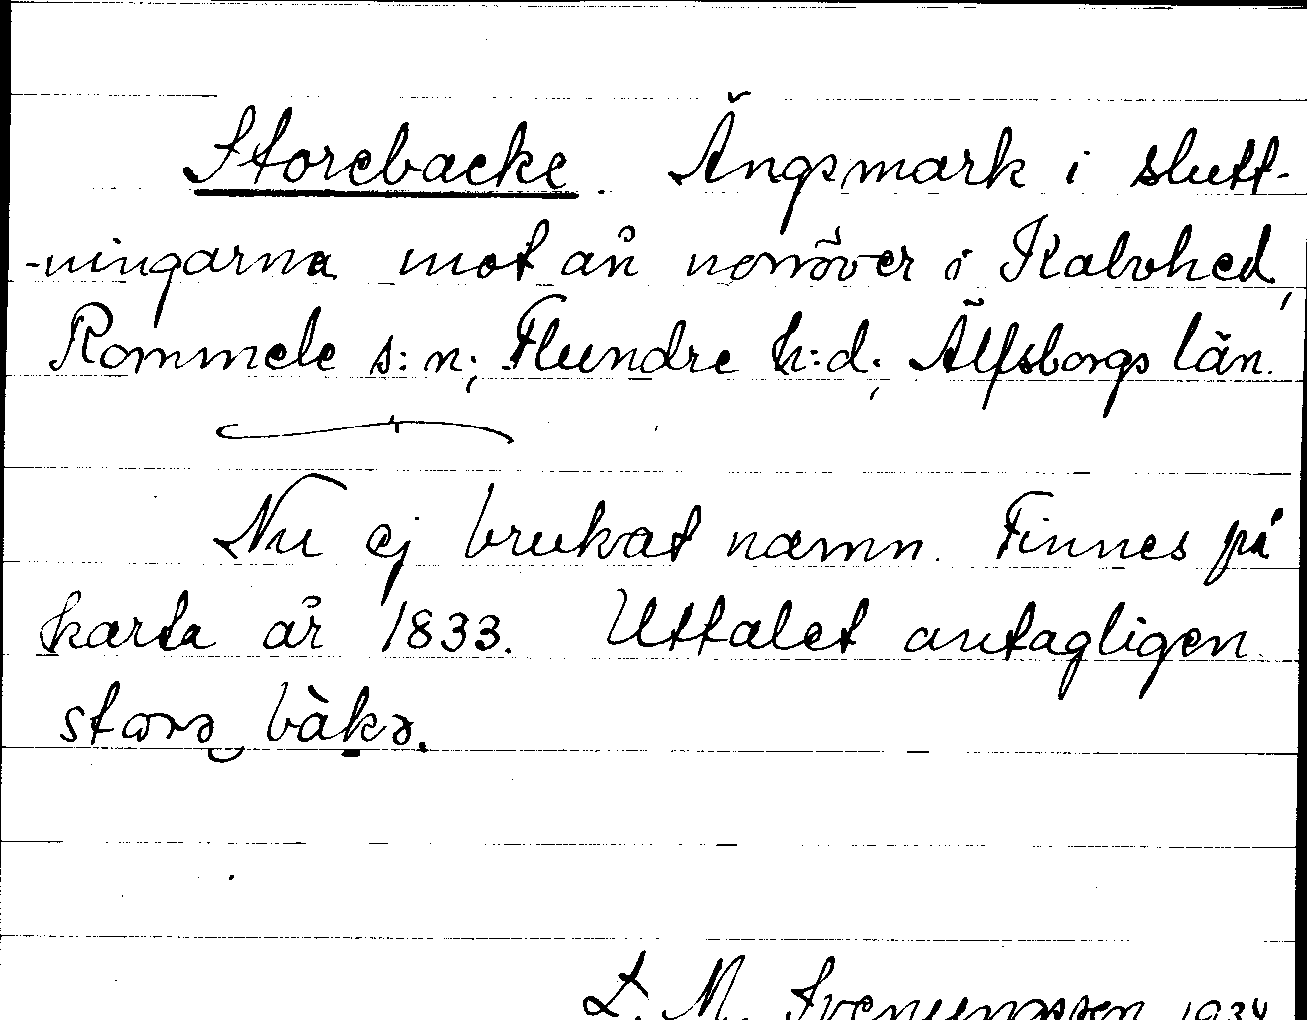 Storebacke. Ängsmark i slutt-
-ningarna mot ån norröver i Kalvhed,
Rommele s:n; Flundre h:d; Älfsborgs län.
Nu ej brukat namn. Finnes på
karta år 1833. Uttalet antagligen
storə bàkə.
L. M. Svenungsson 1934